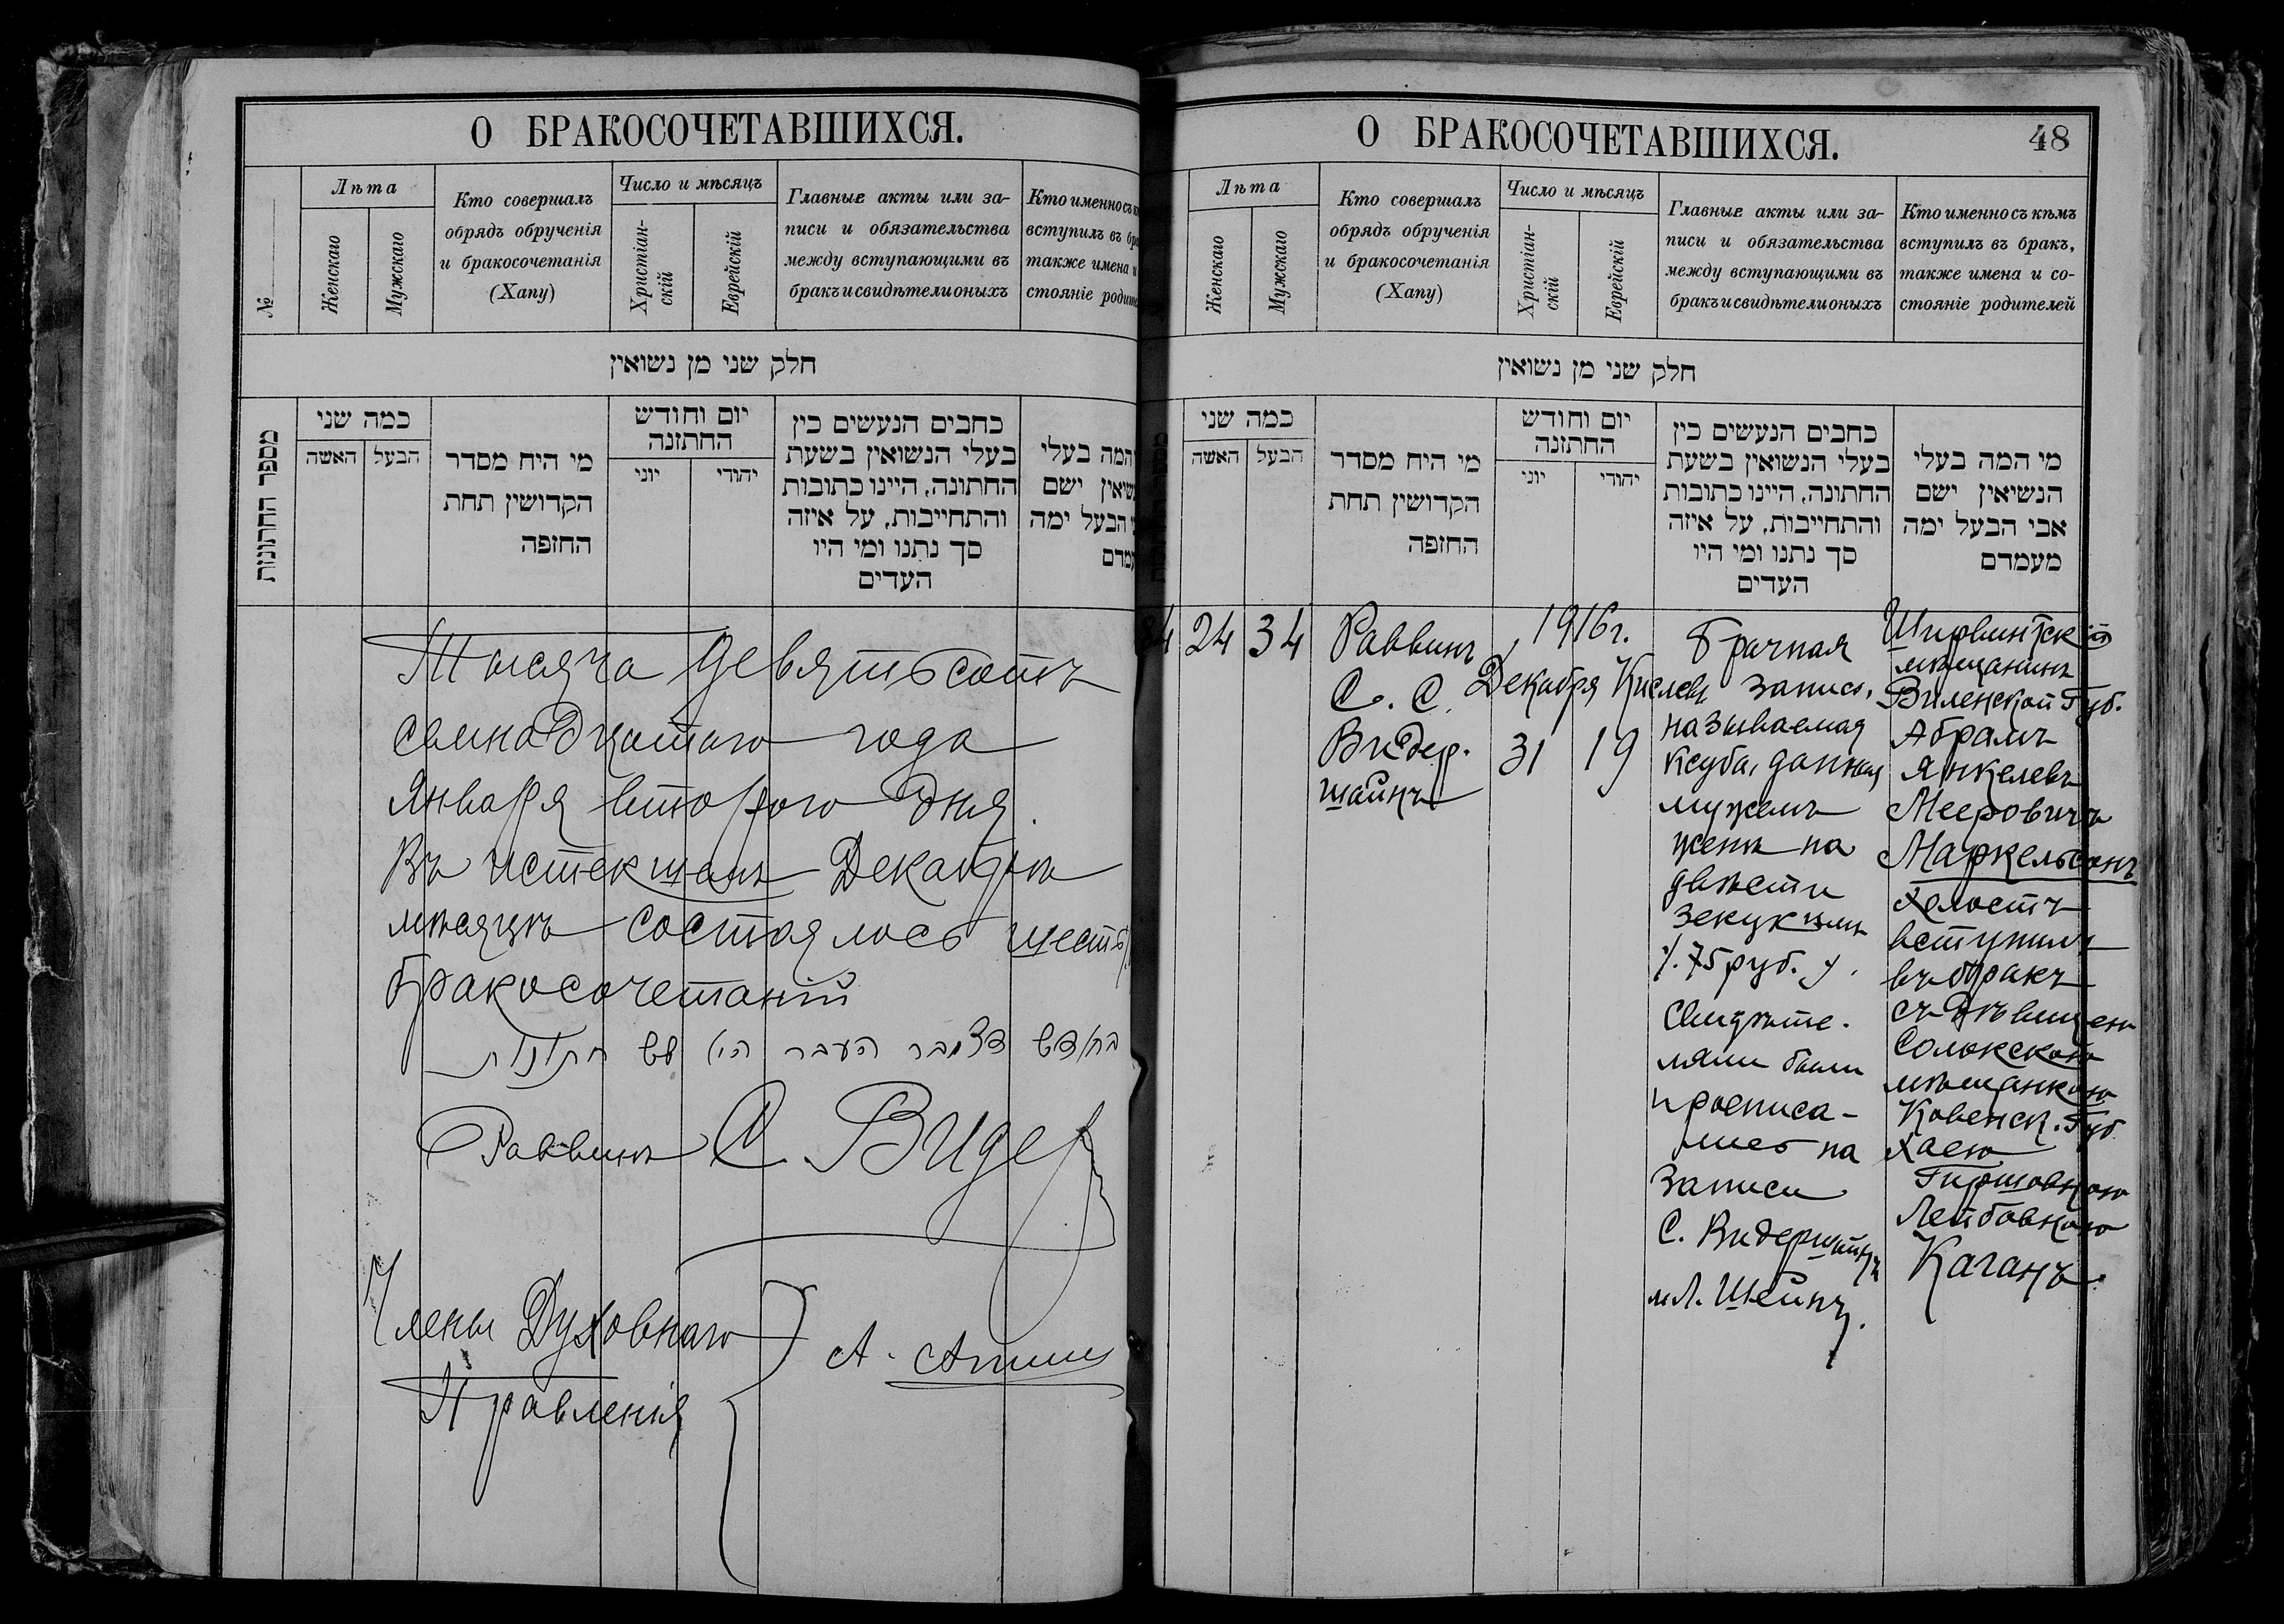 О БРАКОСОЧЕТАВШИХСЯ.
№
Лѣта
Женскаго
Мужскаго
Кто совершалъ
обрядъ обрученія
и бракосочетанія
(Хапу)
Число и мѣсяцъ
Христіан-
скій
Еврейскій
Главные акты или за-
писи и обязательства
между вступающими въ
бракъ и свидѣтели оныхъ
Кто именно съ
вступилъ въ
также имена и
стояніе
חלק שני מן נשואין
מספר החתונות
כמה שני
האשה
הבעל
מי היה מסדר
הקדושין תחת
החופה
יום וחודש
החתונה
יוני
יהודי
כתבים הנעשים בין
בעלי הנשואין בשעת
החתונה, היינו כתובות
והתחייבות, על איזה
סך נתנו ומי היו
העדים
המה בעלי
ישם
הבעל ימה
Тысяча девятьсотъ
семнадцатаго года
Января второго дня.
Въ истекшемъ Декабрѣ
мѣсяцѣ состоялось шесть
бракосочетаній
בחודש דצמבר העבר היו שש חתונות
Раввинъ С. Видер
Члены Духовнаго
Правленія
А.
О БРАКОСОЧЕТАВШИХСЯ.
48
Лѣта
Женскаго
Мужскаго
Кто совершалъ
обрядъ обрученія
и бракосочетанія
(Хапу)
Число и мѣсяцъ
Христіан-
скій
Еврейскій
Главные акты или за-
писи и обязательства
между вступающими въ
бракъ и свидѣтели оныхъ
Кто именно съ кѣмъ
вступилъ въ бракъ,
также имена и со-
стояніе родителей
חלק שני מן נשואין
כמה שני
האשה
הבעל
מי היה מסדר
הקדושין תחת
החופה
יום וחודש
החתונה
יוני
יהודי
כתבים הנעשים בין
בעלי הנשואין בשעת
החתונה, היינו כתובות
והתחייבות, על איזה
סך נתנו ומי היו
העדים
מי המה בעלי
הנשיאין ישם
אבי הבעל ימה
מעמדם
24
34
Раввинъ
С. С.
Видер-
шайнъ
1916г.
Декабря Кислевъ
31 19
Брачная
запись,
называемая
ксуба, данная
мужемъ
женѣ на
двѣсти
зекукимъ
/.75 руб./.
Свидѣте-
лями были
и росписа-
лись на
записи
С. Видершайнъ
и Л. Шейнъ.
Ширвинтскій
мѣщанинъ
Виленской Губ.
Абрамъ
Янкелевъ
Мееровичъ
Маркельсонъ
холостъ
вступилъ
въ бракъ
съ дѣвицею
Солокскою
мѣщанкою
Ковенск. Губ.
Хаею
Гиршовною
Лейбовною
Каганъ.